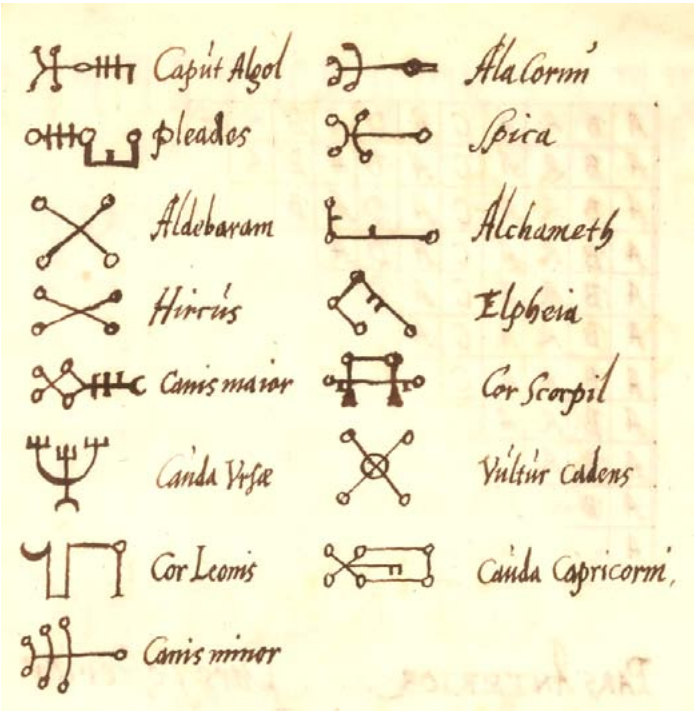 Capút Algol
Pleades
Aldebaram
Hircús
Canis maior
Caúda Vrsæ
Cor Leonis
Canis minor
Ala Corni
Spica
Alchameth
Elpheia
Cor Scorpil
Vúltúr cadens
Caúda Capricorni,